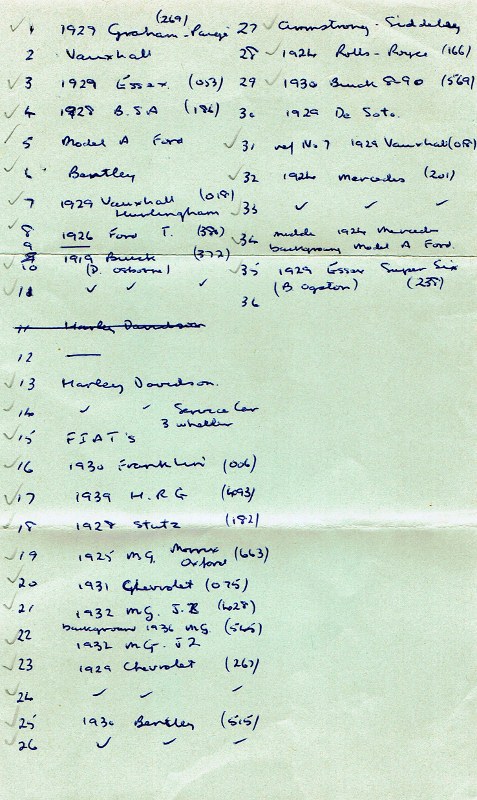 (269)
1 1929 Graham-Paige
2 Vauxhall
3 1929 Essex (053)
4 1928 B.S.A (186)
5 Model A Ford
6 Bentley
7 1929 Vauxhall (018)
Hurlingham
8 1926 Ford T. (384)
9 ——
10 1919 Buick (372)
(D. Osborne)
11 ✓ ✓ ✓
11 Harley Davidson
12 ——
13 Harley Davidson.
14 ✓ ✓ Service Car
3 wheeler
15 FIAT's
16 1930 Franklin (006)
17 1939 H.R.G (493)
18 1928 Stutz (182)
19 1925 M.G. Morris Oxford (663)
20 1931 Chevrolet (075)
21 1932 M.G. J.2 (628)
22 background 1936 M.G. (565)
1932 M.G. J2
23 1929 Chevrolet (267)
24 ✓ ✓ ✓
25 1930 Bentley (515)
26 ✓ ✓ ✓
27 Armstrong-Siddeley
28 1924 Rolls-Royce (166)
29 1930 Buick 8-90 (569)
30 1929 De Soto.
31 ref No 7 1929 Vauxhall (018)
32 1924 Mercedes (201)
33 ✓ ✓ ✓
34 middle 1924 Mercedes
background Model A Ford.
35 1929 Essex Super Six
(B Ogston) (238)
36